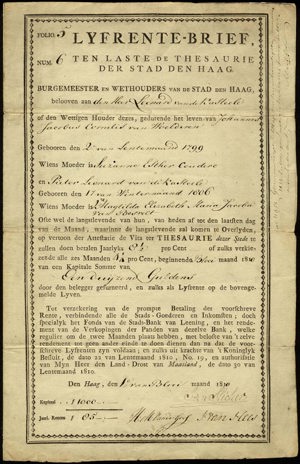 FOLIO 5
LYFRENTE-BRIEF,
NUM. 6 TEN LASTE DE THESAURIE
DER STAD DEN HAAG.
BURGEMEESTER EN WETHOUDERS VAN DE STAD DEN HAAG,
belooven aan den Heer Leonard van de Kasteele
of den Wettigen Houder dezes, gedurende het leven van Johannes
Jacobus Cornelis van
Gebooren den 2 van 1799
Wiens Moeder is Suzanna Esther
en Pieter Leonard van de Kasteele
Gebooren den 17 van Wintermaand 1806
Wiens Moeder is Mathilda Elisabeth Maria Jacoba
van
Ofte wel de langstlevende van hun, van heden af tot den laatsten dag
van de Maand, waarinne de langstlevende zal komen te Overlyden,
op vertoon der Attestatie de Vita ter THESAURIE dezer Stede te
zullen doen betalen Jaarlyks pro Cent of zulks verkie-
zende alle zes Maanden pro Cent, beginnende 1810
van een Kapitale Somme van
Een duyzend Guldens
door den belegger gefurneerd, en zulks als Lyfrente op de bovenge-
melde Lyven.
Tot verzekering van de prompte Betaling der voorschreve
Rente, verbindende alle de Stads-Goederen en Inkomsten; doch
speciaal het Fonds van de Stads-Bank van Leening, en het rende-
ment van de Verkoopingen der Panden van dezelve Bank, welke
regulier om de twee Maanden plaats hebben, met belofte van 't zelve
rendement op geen andere wyze te zullen doen dienen dan na dat de voor-
schreve Lyfrenten zyn voldaan, en zulks uit krachte van 't Koninglyk
Besluit, de dato 22 van Lentemaand 1810, No. 19, en authorisatie
van Myn Heere den Land-Drost van Maasland, de dato 30 van
Lentemaand 1810.
Den Haag, den van maand 1810
Kapitaal f 1000
Jaarl. Renten f 85